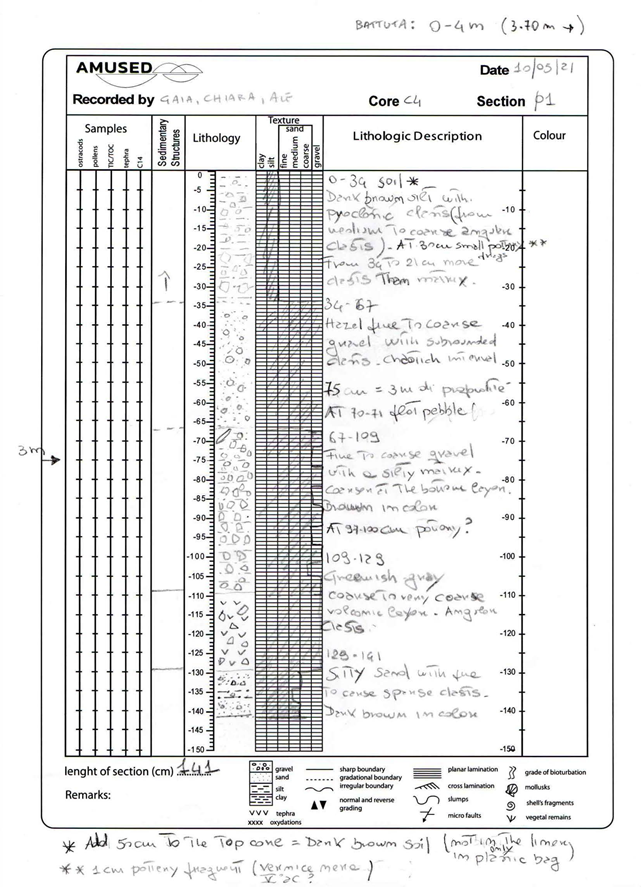 BATTUTA: 0-4m (3.70m →)
AMUSED
Date 10/05/21
Recorded by GAIA, CHIARA, ALE
Core C4
Section P1
Samples
ostracods
pollens
TIC/TOC
tephra
C14
Sedimentary
Structures
Lithology
Texture
sand
clay
silt
fine
medium
coarse
gravel
Lithologic Description
Colour
0
-5
-10
-15
-20
-25
-30
-35
-40
-45
-50
-55
-60
-65
-70
-75
-80
-85
-90
-95
-100
-105
-110
-115
-120
-125
-130
-135
-140
-145
-150
0-34 soil *
Dark brown silt with
pyoclastic clasts (from
medium to coarse angular
clasts). AT 30cm small **
From 34 to 21cm more
clasts than matrix.
34-67
Hazel fine to coarse
gravel with subrounded
clasts.
75cm = 3m di
AT 70-71 flat pebble!
67-109
Fine to coarse gravel
with a silty matrix.
Coarser at the bottom layer.
Brown in color
AT 97-100cm pottery?
109-129
Greenish gray
coarse to very coarse
volcanic layer. Angular
clasts.
129-141
Silty sand with fine
to coarse sparse clasts.
Dark brown in color
-10
-20
-30
-40
-50
-60
-70
-80
-90
-100
-110
-120
-130
-140
-150
3m
lenght of section (cm) 141
Remarks:
gravel
sand
silt
clay
tephra
xxxx oxydations
sharp boundary
gradational boundary
irregular boundary
normal and reverse
grading
planar lamination
cross lamination
slumps
micro faults
grade of bioturbation
mollusks
shell's fragments
vegetal remains
* Add 50cm to the top core = Dark brown soil (not in the liner, only
in plastic bag)
** 1cm pottery fragment (vernice nera)
V sec?